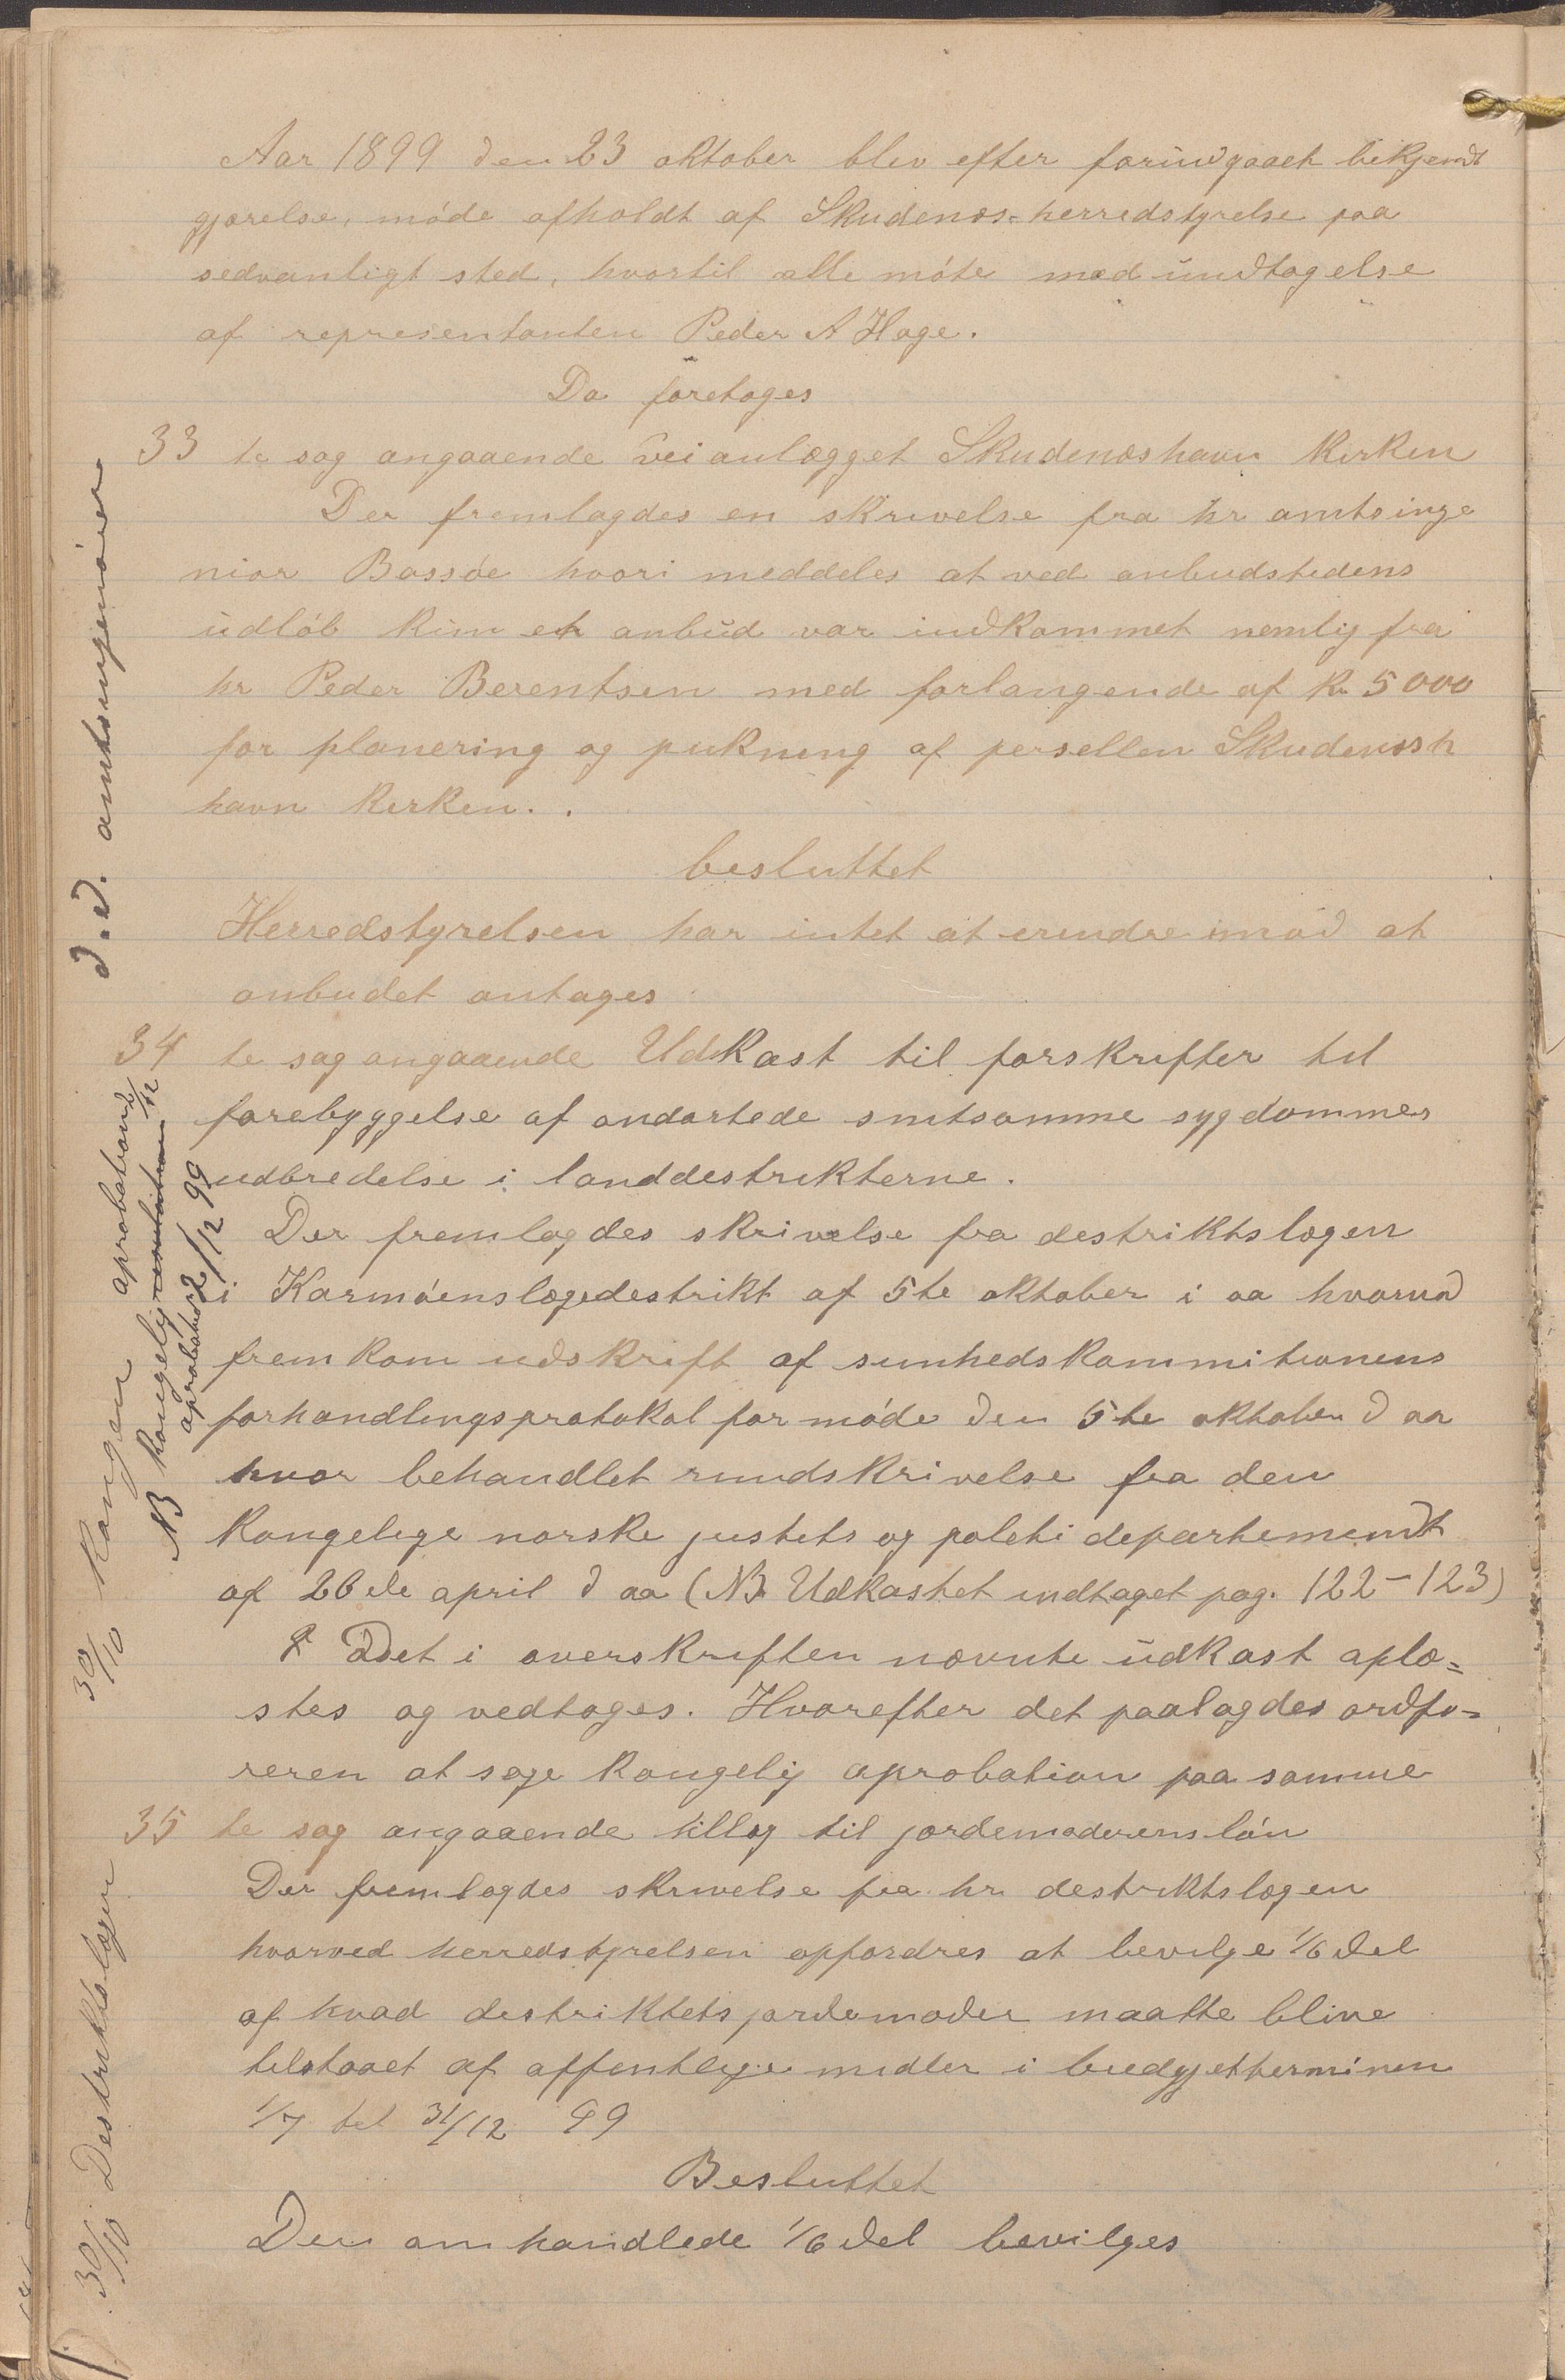 Aar 1899 den 23 oktober blev efter forudgaaet bekjendt
gjørelse, møde afholdt af Skudenæs herredstyrelse paa
sedvanligt sted, hvortil alle møte med undtagelse
af representanten Peder A Hage.
Da foretoges
33 te sag angaaende veianlægget Skudenæshavn Kirken
Der fremlagdes en skrivelse fra hr amtsinge
niør Bassøe hvori meddeles at ved anbudstidens
udløb kun et anbud var indkommet nemlig fra
hr Peder Berentsen med forlangende af kr 5000
for planering og pukning af persellen Skudenæsh
havn Kirken..
besluttet
Herredstyrelsen har intet at erindre imod at
anbudet antages
34 te sag angaaende Udkast til forskrifter til
forebyggelse af ondartede smitsomme sygdommes
udbredelse i landdestrikterne.
Der fremlagdes skrivelse fra destriktslægen
i Karmøens lægedestrikt af 5te oktober i aa hvorved
fremkom udskrift af sunhedskommitionens
forhandlingsprotokol for møde den 5te oktober d aa
hvor behandlet rundskrivelse fra den
kongelige norske justits og politi departement
af 26de april d aa (NB Udkastet indtaget pag. 122-123)
Det i overskriften nævnte udkast oplæ=
stes og vedtoges. Hvorefter det paalagdes ordfø=
reren at søge kongelig aprobation paa samme
35 te sag angaaende tillæg til jordemoderens løn
Der fremlagdes skrivelse fra hr destriktslægen
hvorved herredstyrelsen opfordres at bevilge 1/6 del
af hvad destriktets jordemoder maatte blive
tilstaaet af offentlige midler i budgjetterminen
1/7 til 31/12 99
Besluttet
Den omhandlede 1/6 del bevilges
d.d. amtsingeniøren
30/10 Kongen aprobation 2/12
NB kongelig resolution
aprobation 2/12 99
30/10 Destriktslægen